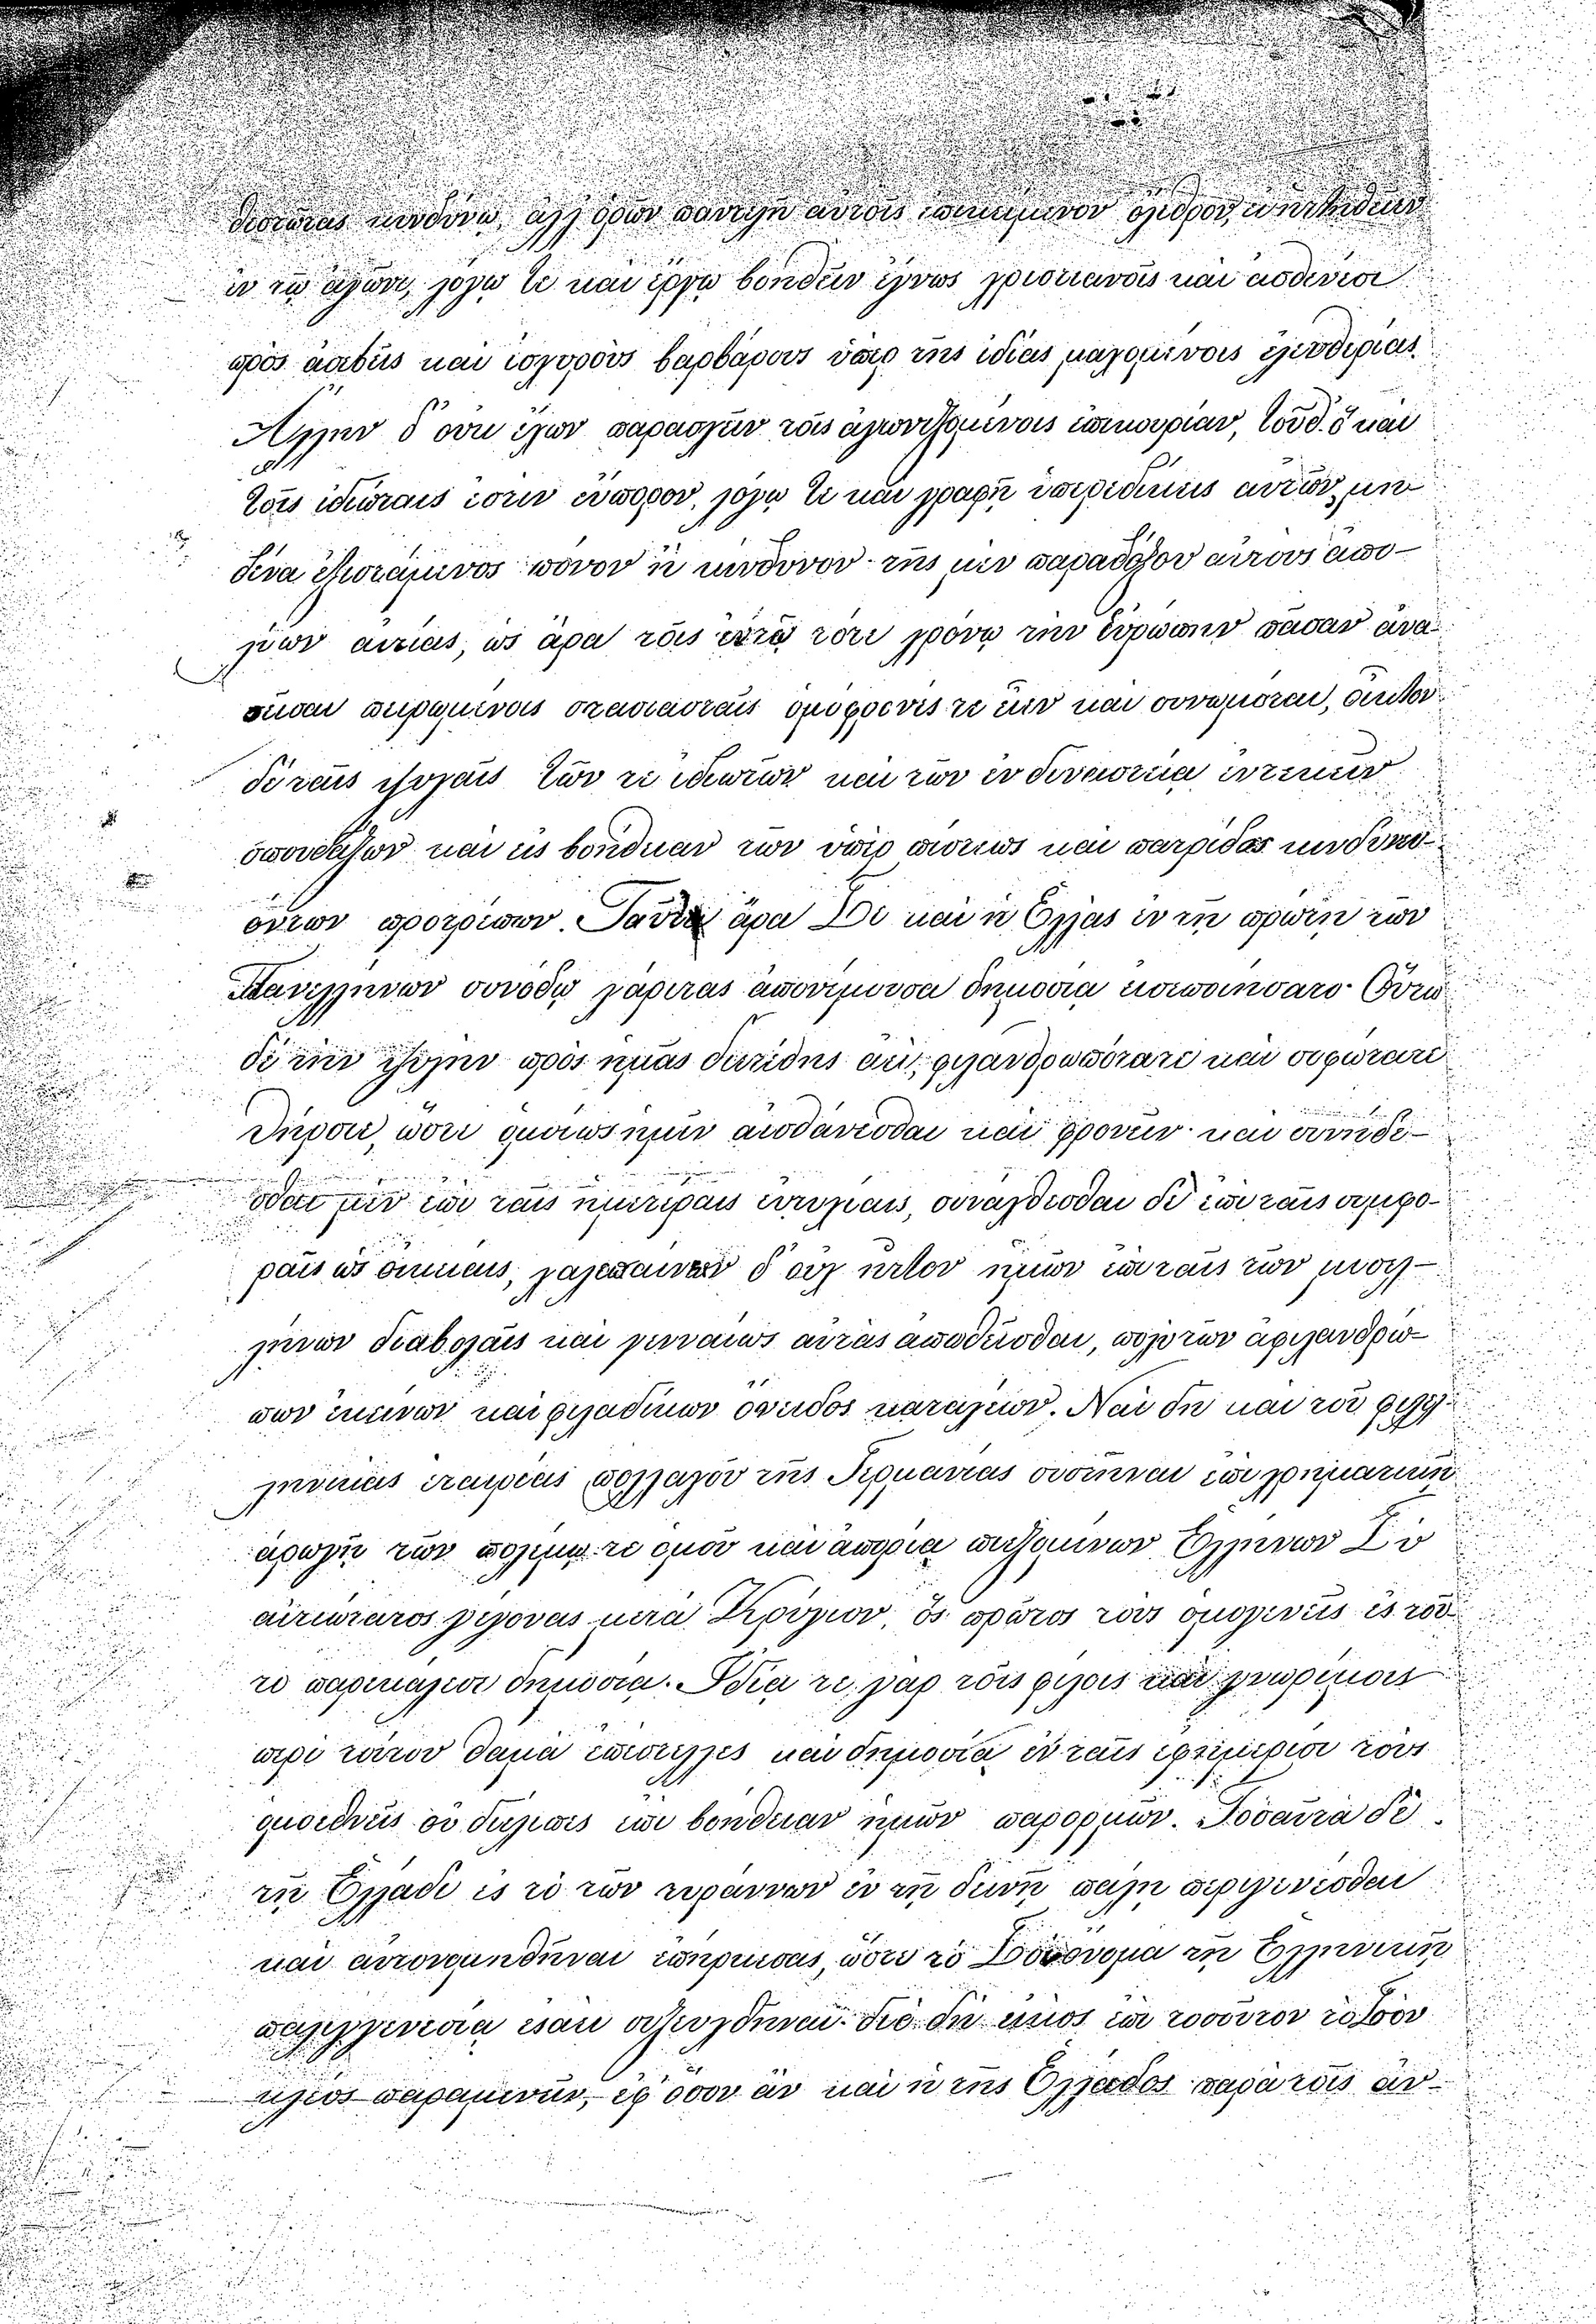 κινδύνῳ, ἀλλ' ὁρῶν παντελῆ αὐτοῖς ἐπικείμενον ὄλεθρον,
ἐν τῷ ἀγῶνι, λόγῳ τε καὶ ἔργῳ βοηθεῖν ἔγνως χριστιανοῖς καὶ ἀσθενέσι
πρὸς ἀσεβεῖς καὶ ἰσχυροὺς βαρβάρους ὑπὲρ τῆς ἰδίας μαχομένοις ἐλευθερίας.
Ἄλλην δ' οὐκ ἔχων παρασχεῖν τοῖς ἀγωνιζομένοις ἐπικουρίαν, τοῦθ' ὃ καὶ
τοῖς ἰδιώταις ἐστὶν εὔπορον, λόγῳ τε καὶ γραφῇ ὑπερεδίκεις αὐτῶν, μη-
δένα ἐξιστάμενος πόνον ἢ κίνδυνον· τῆς μὲν παραδόξου αὐτοὺς ἀπο-
λύων αἰτίας, ὡς ἄρα τοῖς ἐν τῷ τότε χρόνῳ τὴν Εὐρώπην πᾶσαν ἀνα-
σεῖσαι πειρωμένοις στασιασταῖς ὁμόφρονές τε εἶεν καὶ συνωμόται,
δὲ ταῖς ψυχαῖς τῶν τε ἰδιωτῶν καὶ τῶν ἐν δυναστείᾳ ἐντεινῶν
σπουδάζων καὶ εἰς βοήθειαν τῶν ὑπὲρ πίστεως καὶ πατρίδος κινδυνευ-
όντων προτρέπων. Ταῦτα ἄρα Σὲ καὶ ἡ Ἑλλὰς ἐν τῇ πρώτῃ τῶν
Πανελλήνων συνόδῳ χάριτας ἀπονέμουσα δημοσίᾳ εἰσεποιήσατο· Οὕτω
δὲ τὴν ψυχὴν πρὸς ἡμᾶς διετέθης ἀεί, φιλανθρωπότατε καὶ σοφώτατε
Θείρσιε, ὥστε ὁμοίως ἡμῖν αἰσθάνεσθαι καὶ φρονεῖν· καὶ συνήδε-
σθαι μὲν ἐπὶ ταῖς ἡμετέραις εὐτυχίαις, συνάχθεσθαι δὲ ἐπὶ ταῖς συμφο-
ραῖς ὡς οἰκείαις, χαλεπαίνειν δ' οὐχ ἧττον ἡμῶν ἐπὶ ταῖς τῶν μισελ-
λήνων διαβολαῖς καὶ γενναίως αὐτὰς ἀπωθεῖσθαι, πολὺ τῶν ἀφιλανθρώ-
πων ἐκείνων καὶ φιλαδίκων ὄνειδος καταχέων. Ναὶ δὴ καὶ τοῦ φιλελ-
ληνικὰς ἑταιρείας πολλαχοῦ τῆς Γερμανίας συστῆναι ἐπὶ χρηματικῇ
ἀρωγῇ τῶν πολέμῳ τε ὁμοῦ καὶ ἀπορίᾳ πιεζομένων Ἑλλήνων Σὺ
αἰτιώτατος γέγονας μετὰ Κρούγιον, ὃς πρῶτος τοὺς ὁμογενεῖς ἐς τοῦ-
το παρεκάλεσε δημοσίᾳ. Ἰδίᾳ τε γὰρ τοῖς φίλοις καὶ γνωρίμοις
περὶ τούτου θαμὰ ἐπέστελλες καὶ δημοσίᾳ ἐν ταῖς ἐφημερίσι τοὺς
ὁμοεθνεῖς οὐ διέλιπες ἐπὶ βοήθειαν ἡμῶν παρορμῶν. Τοσαῦτα δὲ
τῇ Ἑλλάδι ἐς τὸ τῶν τυράννων ἐν τῇ δεινῇ πάλῃ περιγενέσθαι
καὶ αὐτονομηθῆναι ἐπήρκεσας, ὥστε τὸ Σὸν ὄνομα τῇ Ἑλληνικῇ
παλιγγενεσίᾳ ἐσαεὶ συζευχθῆναι· διὸ δὴ εἰκὸς ἐπὶ τοσοῦτον τὸ Σὸν
κλέος παραμενεῖν, ἐφ' ὅσον ἂν καὶ ἡ τῆς Ἑλλάδος παρὰ τοῖς ἀν-